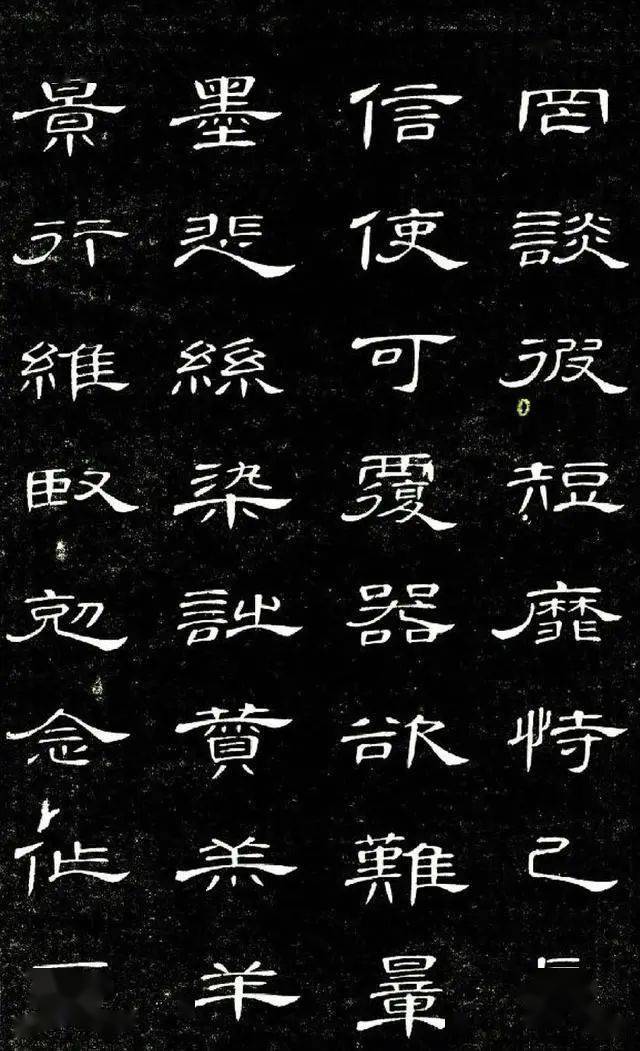 罔談彼短靡恃己
信使可覆器欲難量
墨悲絲染詩賛羔羊
景行維臤剋念作